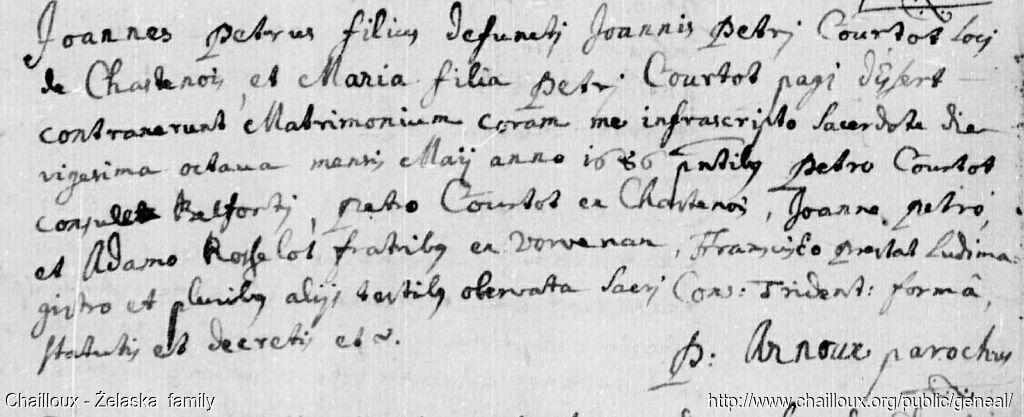 Joannes Petrus filius defuncti Joannis Petri Courtot loci
de Chastenois, et Maria filia Petri Courtot pagi d'Essert
contraxerunt Matrimonium coram me infrascripto sacerdote die
vigesima octava mensis Maij anno 1686 pntibq Petro Courtot
consule Belforti, Petro Courtot ex Chastenois, Joanne petro,
et Adamo Rosselot fratribq ex vorvenan, Francisco prestat Ludima-
gistro et pluribq alijs testibq observata Sacri Conc: Trident: formâ,
statutis et decretis et c.
P: Arnoux parochus
Chailloux - Żelaska family
http://www.chailloux.org/public/geneal/